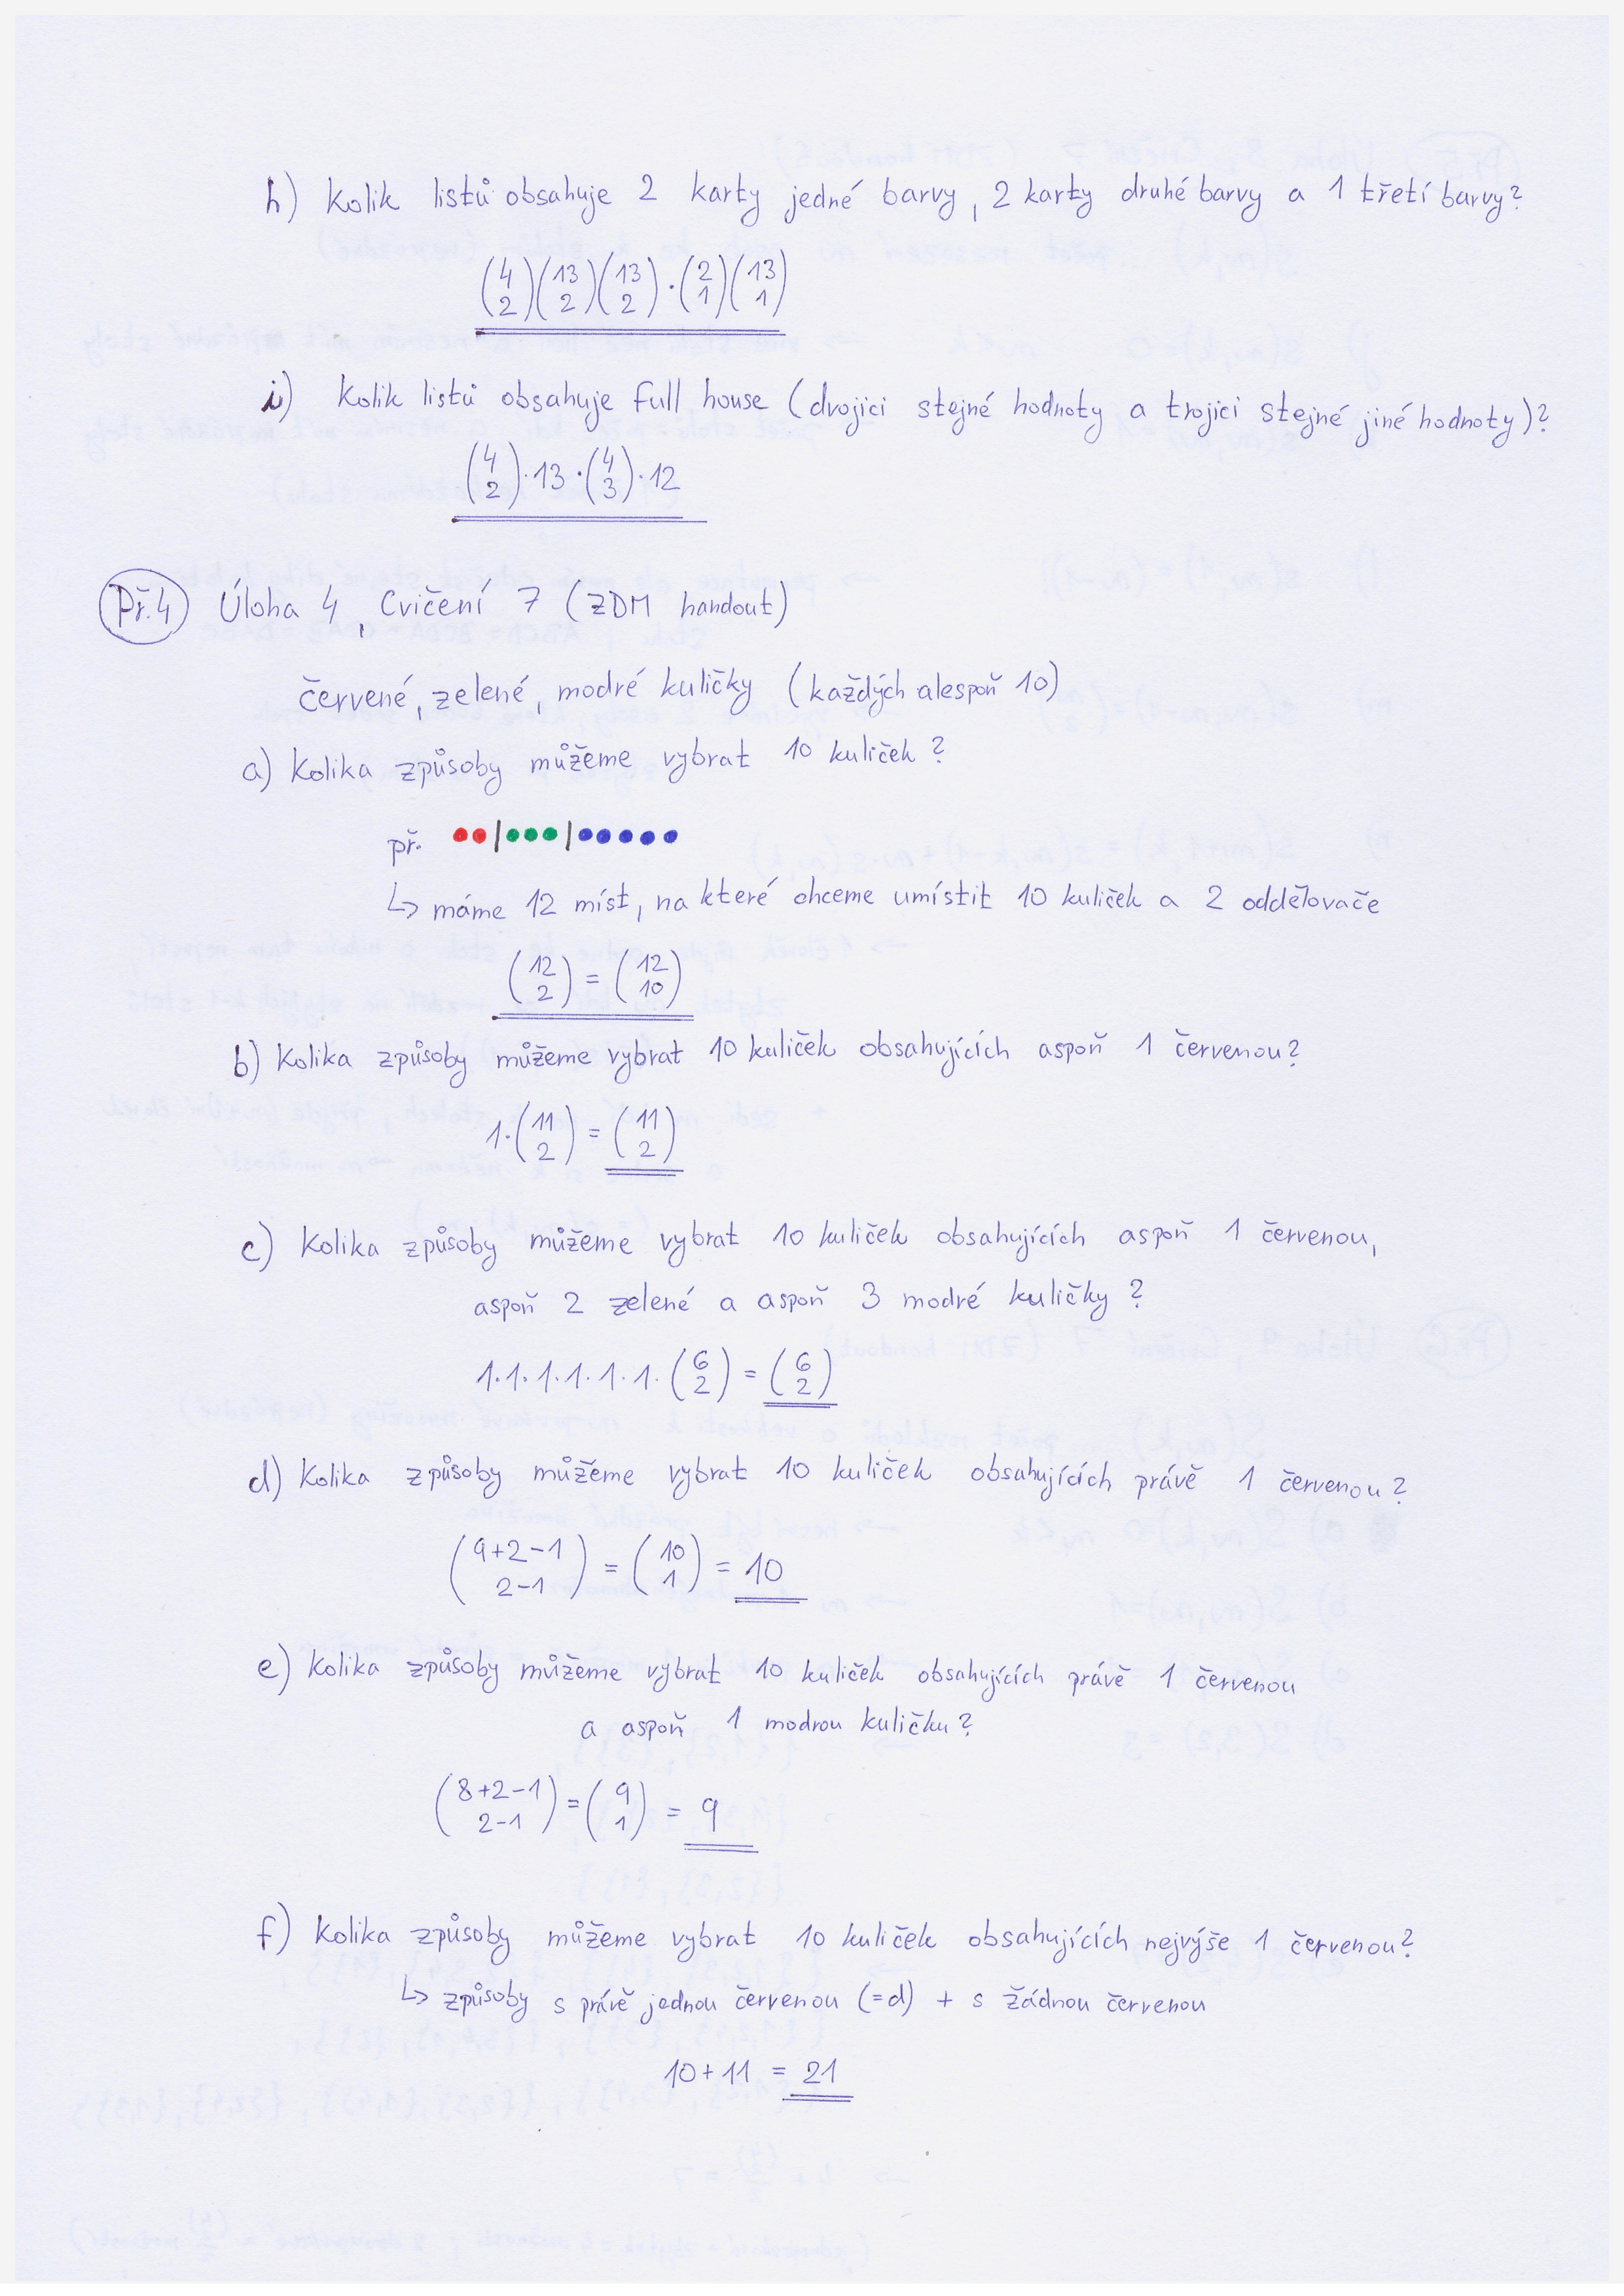 h) Kolik listů obsahuje 2 karty jedné barvy, 2 karty druhé barvy a 1 třetí barvy?
(4 2)(13 2)(13 2)·(2 1)(13 1)
i) Kolik listů obsahuje full house (dvojici stejné hodnoty a trojici stejné jiné hodnoty)?
(4 2)·13·(4 3)·12
Př.4 Úloha 4, Cvičení 7 (ZDM handout)
červené, zelené, modré kuličky (každých alespoň 10)
a) Kolika způsoby můžeme vybrat 10 kuliček?
př. ●●|●●●|●●●●●
↳ máme 12 míst, na které chceme umístit 10 kuliček a 2 oddělovače
(12 2) = (12 10)
b) Kolika způsoby můžeme vybrat 10 kuliček obsahujících aspoň 1 červenou?
1·(11 2) = (11 2)
c) Kolika způsoby můžeme vybrat 10 kuliček obsahujících aspoň 1 červenou,
aspoň 2 zelené a aspoň 3 modré kuličky?
1·1·1·1·1·1·(6 2) = (6 2)
d) Kolika způsoby můžeme vybrat 10 kuliček obsahujících právě 1 červenou?
(9+2-1 2-1) = (10 1) = 10
e) Kolika způsoby můžeme vybrat 10 kuliček obsahujících právě 1 červenou
a aspoň 1 modrou kuličku?
(8+2-1 2-1) = (9 1) = 9
f) Kolika způsoby můžeme vybrat 10 kuliček obsahujících nejvýše 1 červenou?
↳ způsoby s právě jednou červenou (=d) + s žádnou červenou
10+11 = 21